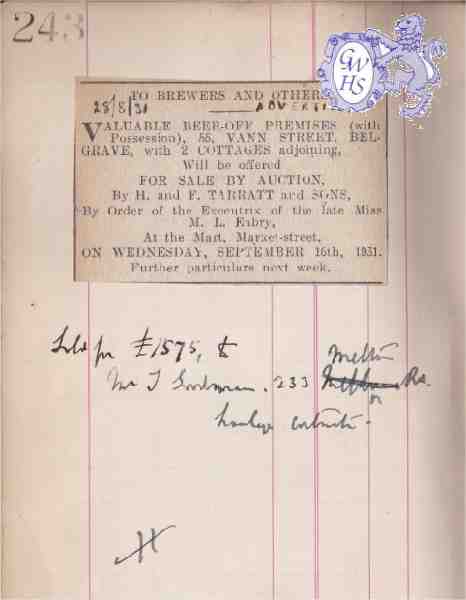 243
GWHS
TO BREWERS AND OTHER
28/8/31 ADVERT
VALUABLE BEER-OFF PREMISES (with
Possession), 55, VANN STREET, BEL-
GRAVE, with 2 COTTAGES adjoining,
Will be offered
FOR SALE BY AUCTION,
By H. and F. TARRATT and SONS,
By Order of the Executrix of the late Miss
M. L. Enbry,
At the Mart, Market-street,
ON WEDNESDAY, SEPTEMBER 16th, 1931.
Further particulars next week.
Sold for £1575, to
Melton
Mr T Goodman. 233 Rd.
haulage contractor.